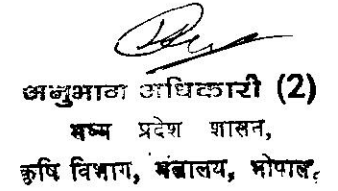 अनुभाग अधिकारी (2)
मध्य प्रदेश शासन,
कृषि विभाग, मंत्रालय, भोपाल,